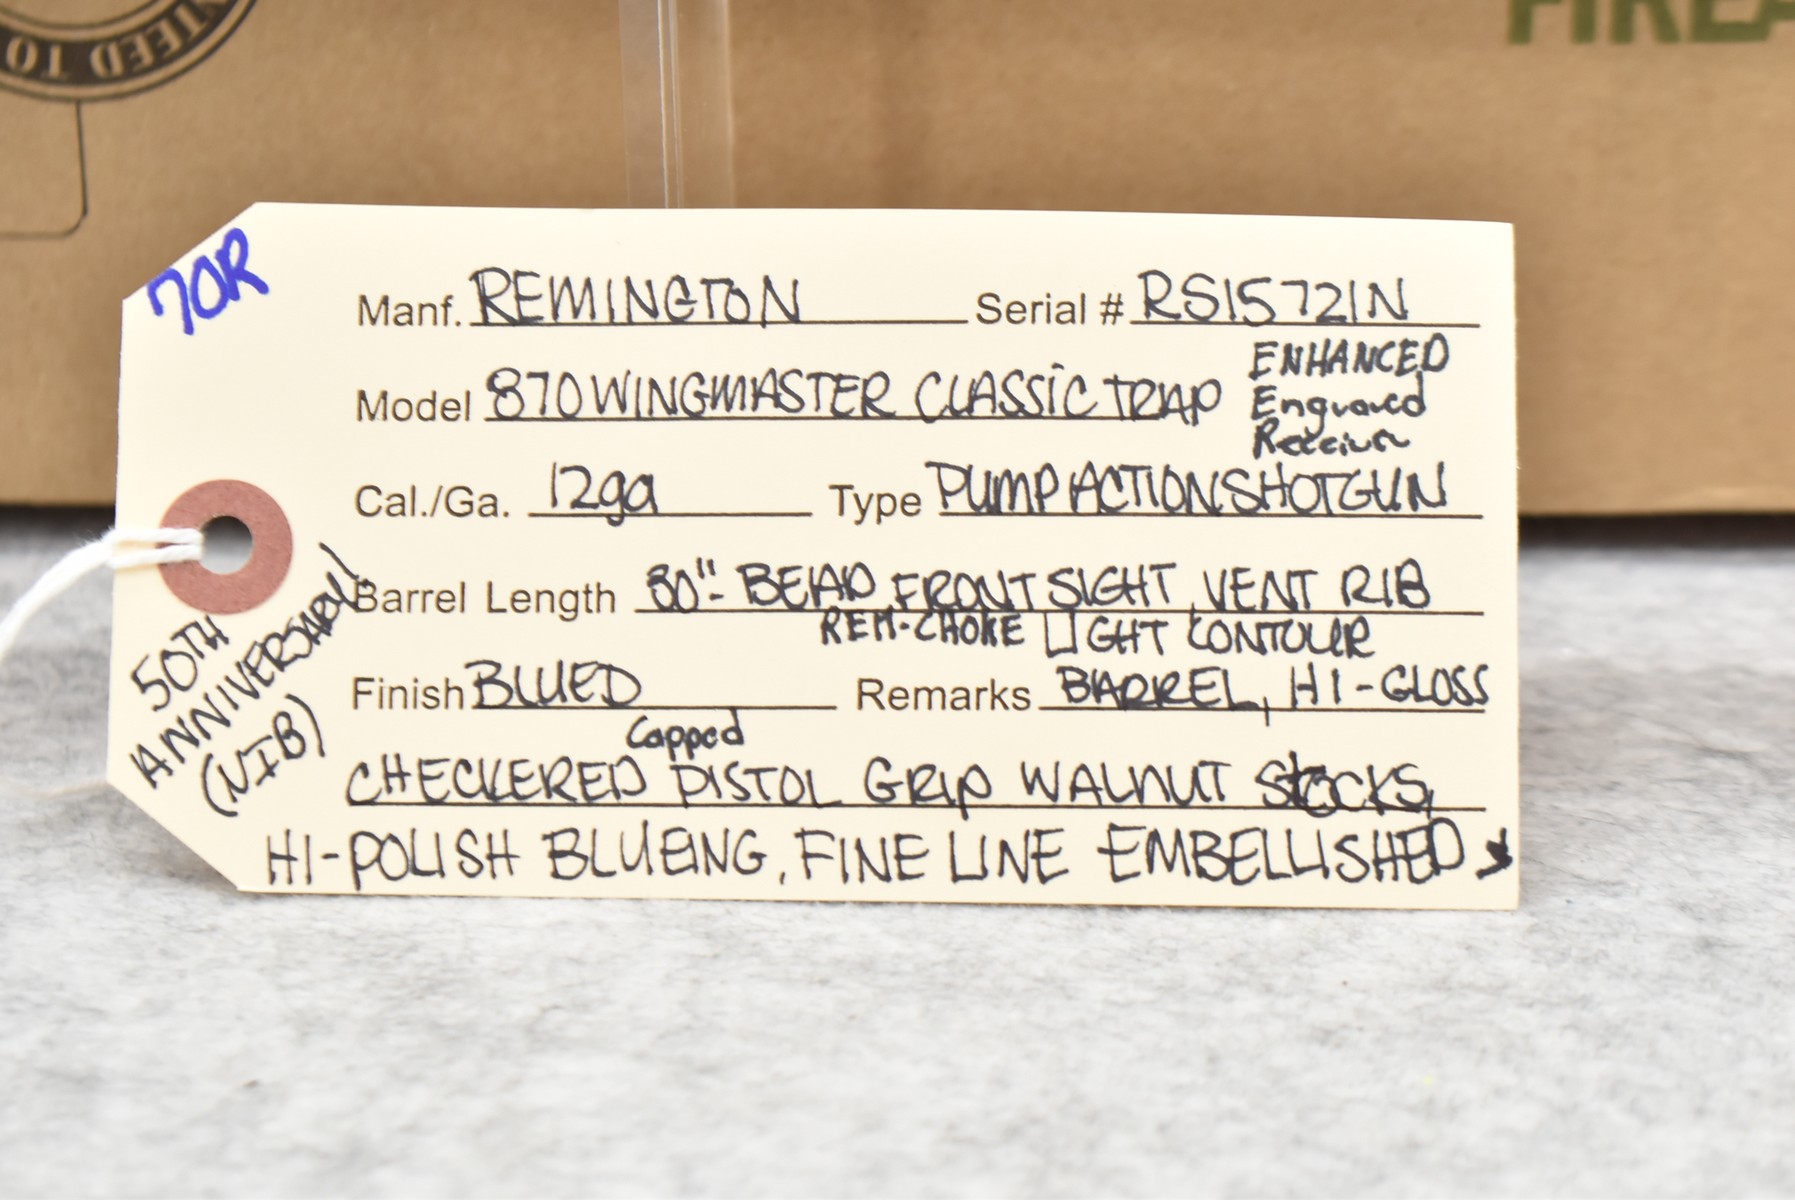 NTEED TO
FIREA
70R
Manf. REMINGTON Serial # RS15721N
ENHANCED
Model 870 WINGMASTER CLASSIC TRAP Engraved
Receiver
Cal./Ga. 12ga Type PUMP ACTION SHOTGUN
Barrel Length 30"- BEAD FRONT SIGHT, VENT RIB
REM-CHOKE LIGHT CONTOUR
Finish BLUED Remarks BARREL, HI-GLOSS
Capped
CHECKERED PISTOL GRIP WALNUT STOCKS,
HI-POLISH BLUEING, FINE LINE EMBELLISHED
50TH
ANNIVERSARY
(NIB)